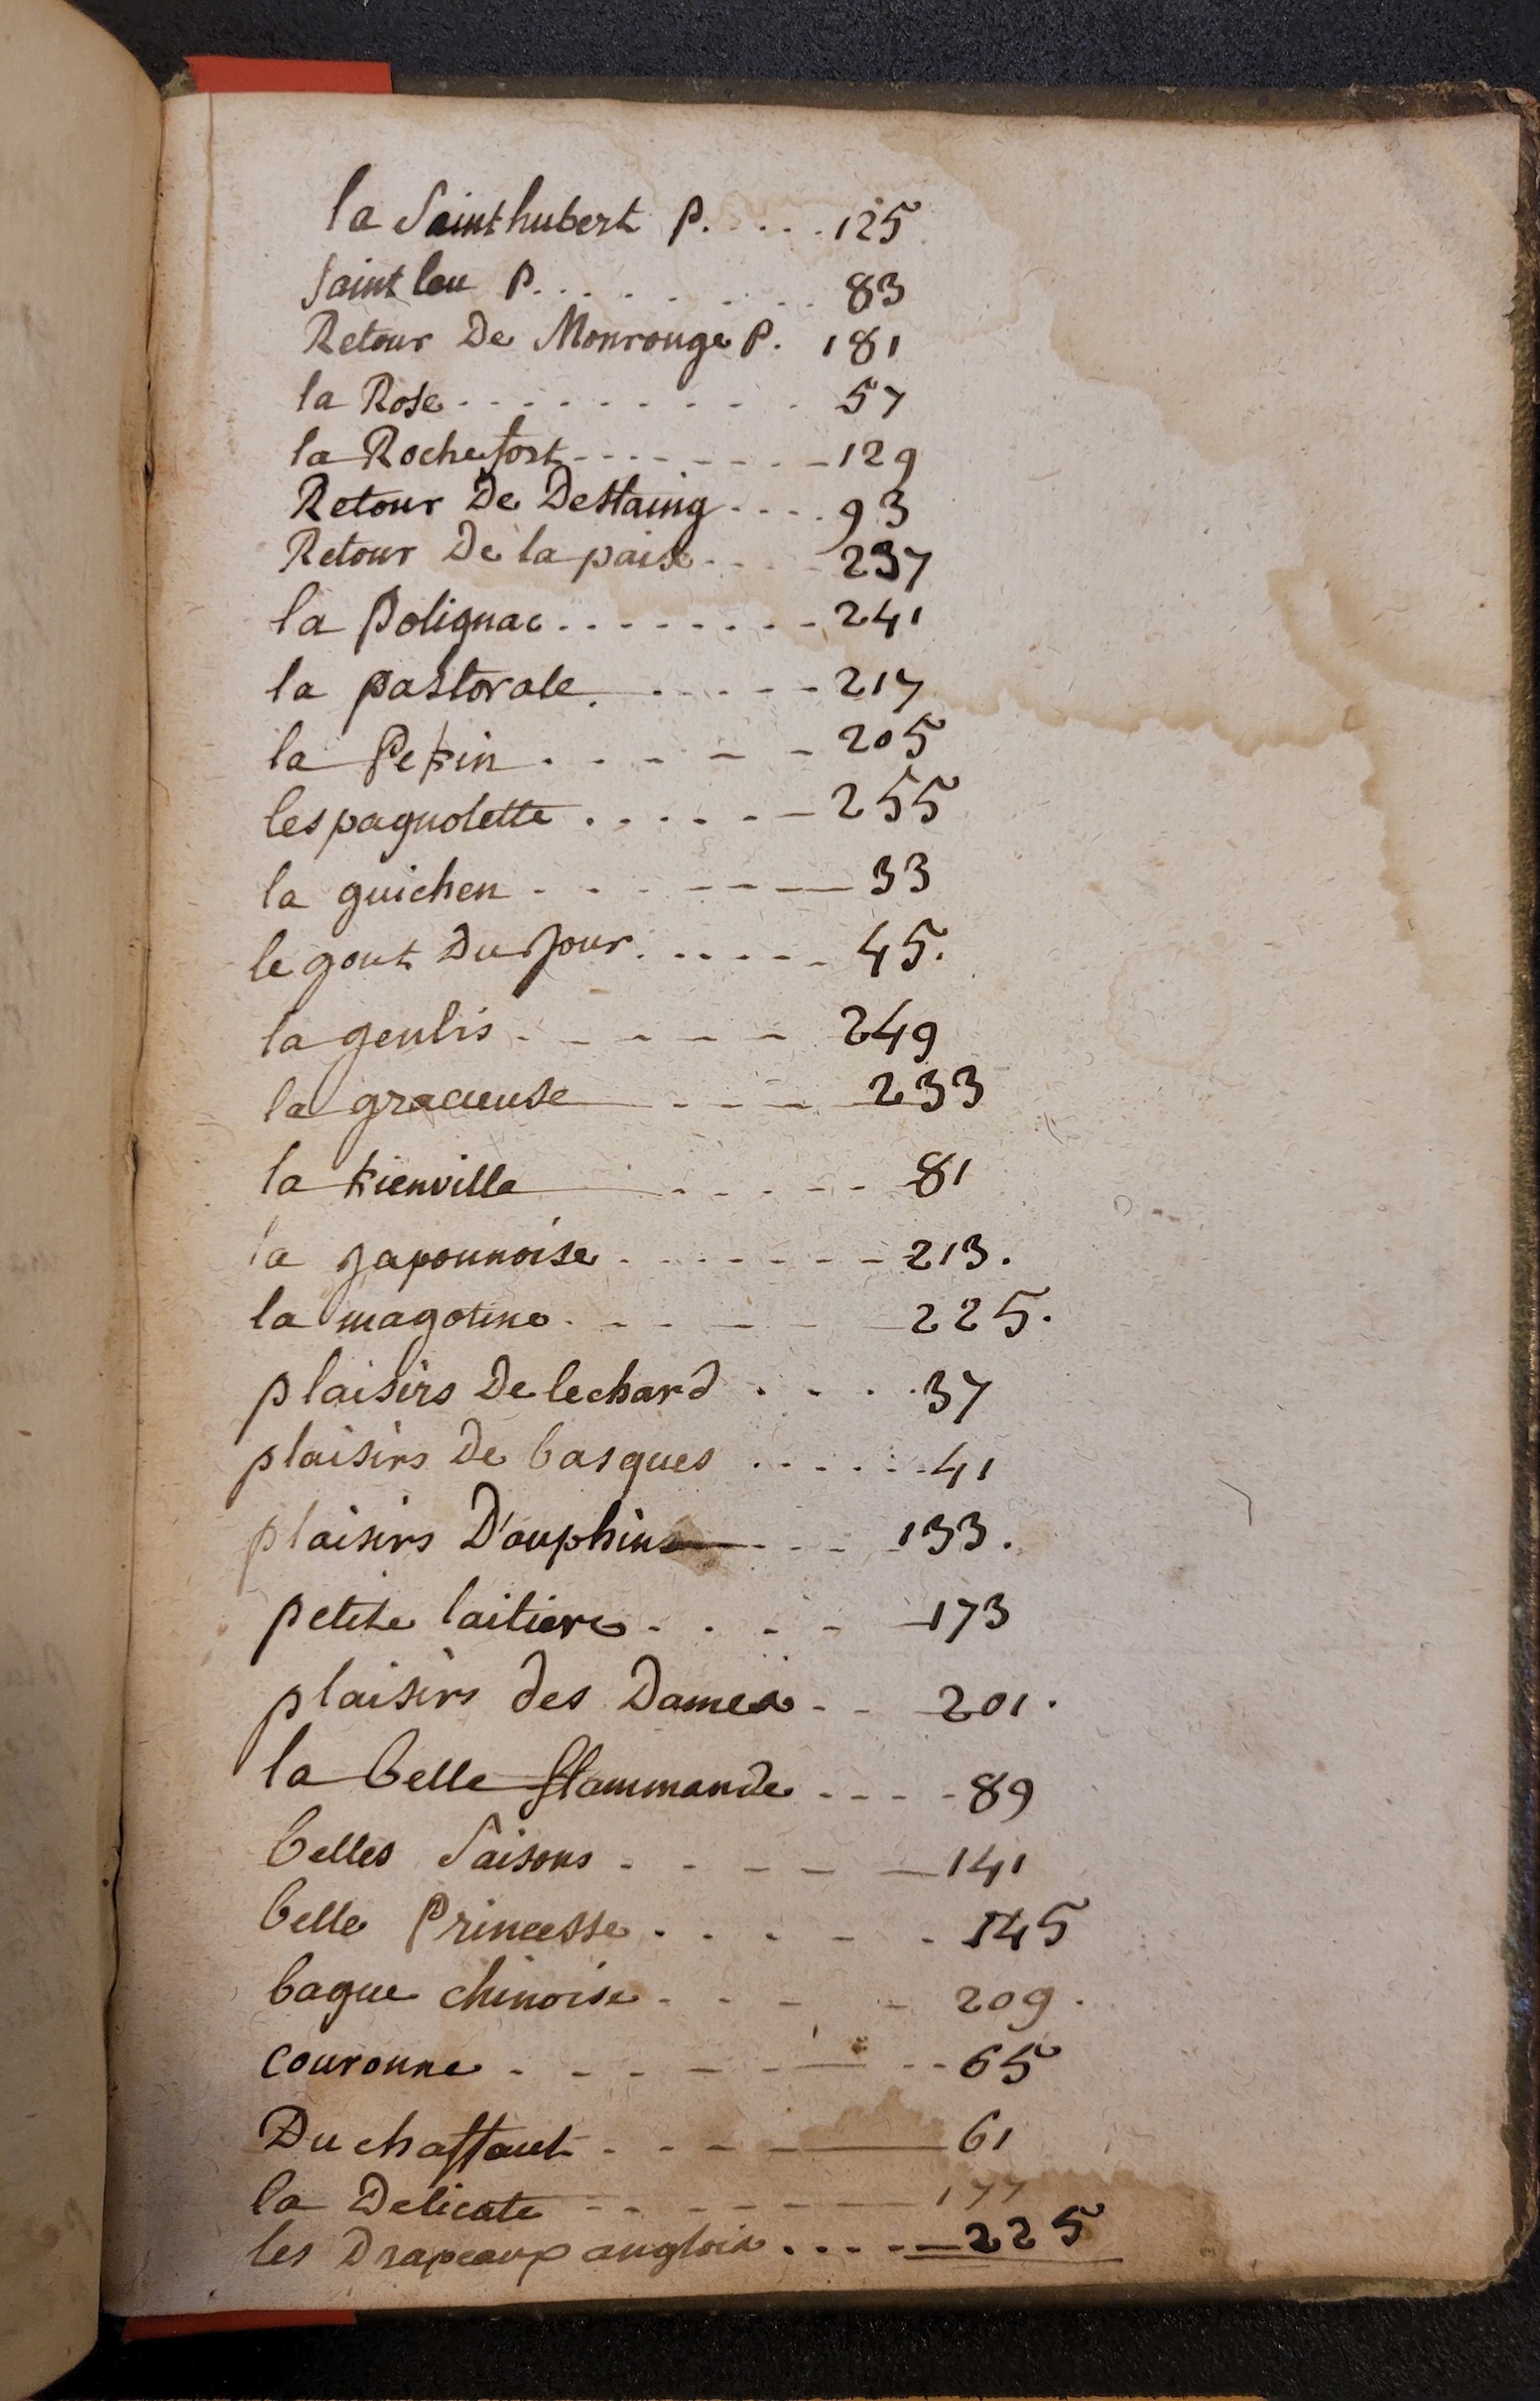 la Sainthubert P. . . . . 125
Saint leu P. . . . . . . . 83
Retour De Monrouge P. 181
la Rose . . . . . . . . . 57
la Rochefort - - - - - - - 129
Retour De Destaing . . . . 93
Retour De la paix . . . . 237
la polignac . . . . . . . . 241
la pastorale . . . . . . 217
la Pekin . . . . - - 205
lespagnolette . . . . . - 255
la guichen - - - - - - 33
le gout Du Jour . . . . . . 45.
la genlis - - - - - - 249
la gracieuse - - - 233
la kienville . . . . . 81
la Japonnoise . . . . . . . 213.
la magotine . . . - - 225.
plaisirs De lechard . . . . 37
plaisirs De basques . . . . . . 41
plaisirs D'auphins - - - - 133.
petite laitiere . . . . 173
plaisirs des Dames - - 201.
la belle flammande - - - - 89
belles Saisons - - - - - 141
belle Princesse . . . . . 145
bague chinoise - - - - 209.
couronne - - - - - - - 65
Du chaffaut - - - - 61
la Delicate - - - - - 177
les Drapeaux anglois . . . . - 225